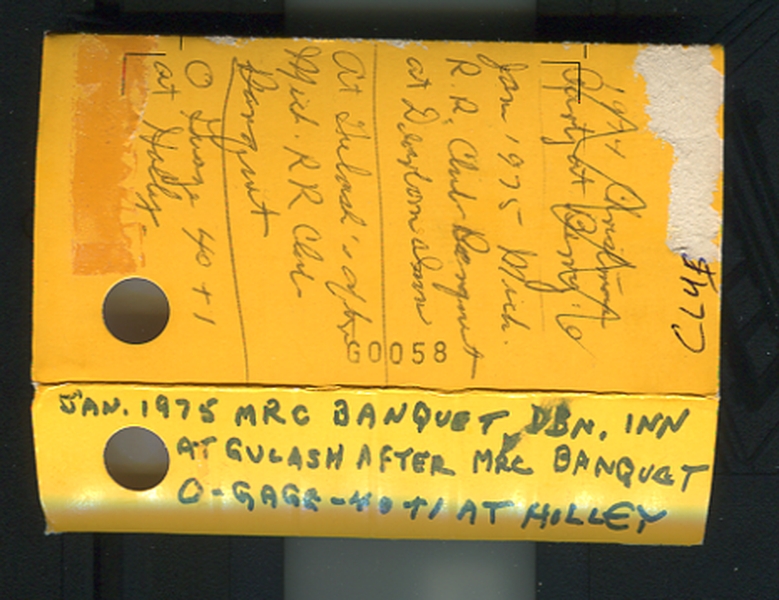 Christmas
Party at
Jan 1975 Mich.
R.R. Club Banquet
at Dearborn Inn
At Gulash's after
Mich. RR Club
Banquet
O Guage 40+1
at Holly
G0058
JAN. 1975 MRC BANQUET DBN. INN
AT GULASH AFTER MRC BANQUET
O-GAGE-40+1 AT HOLLEY